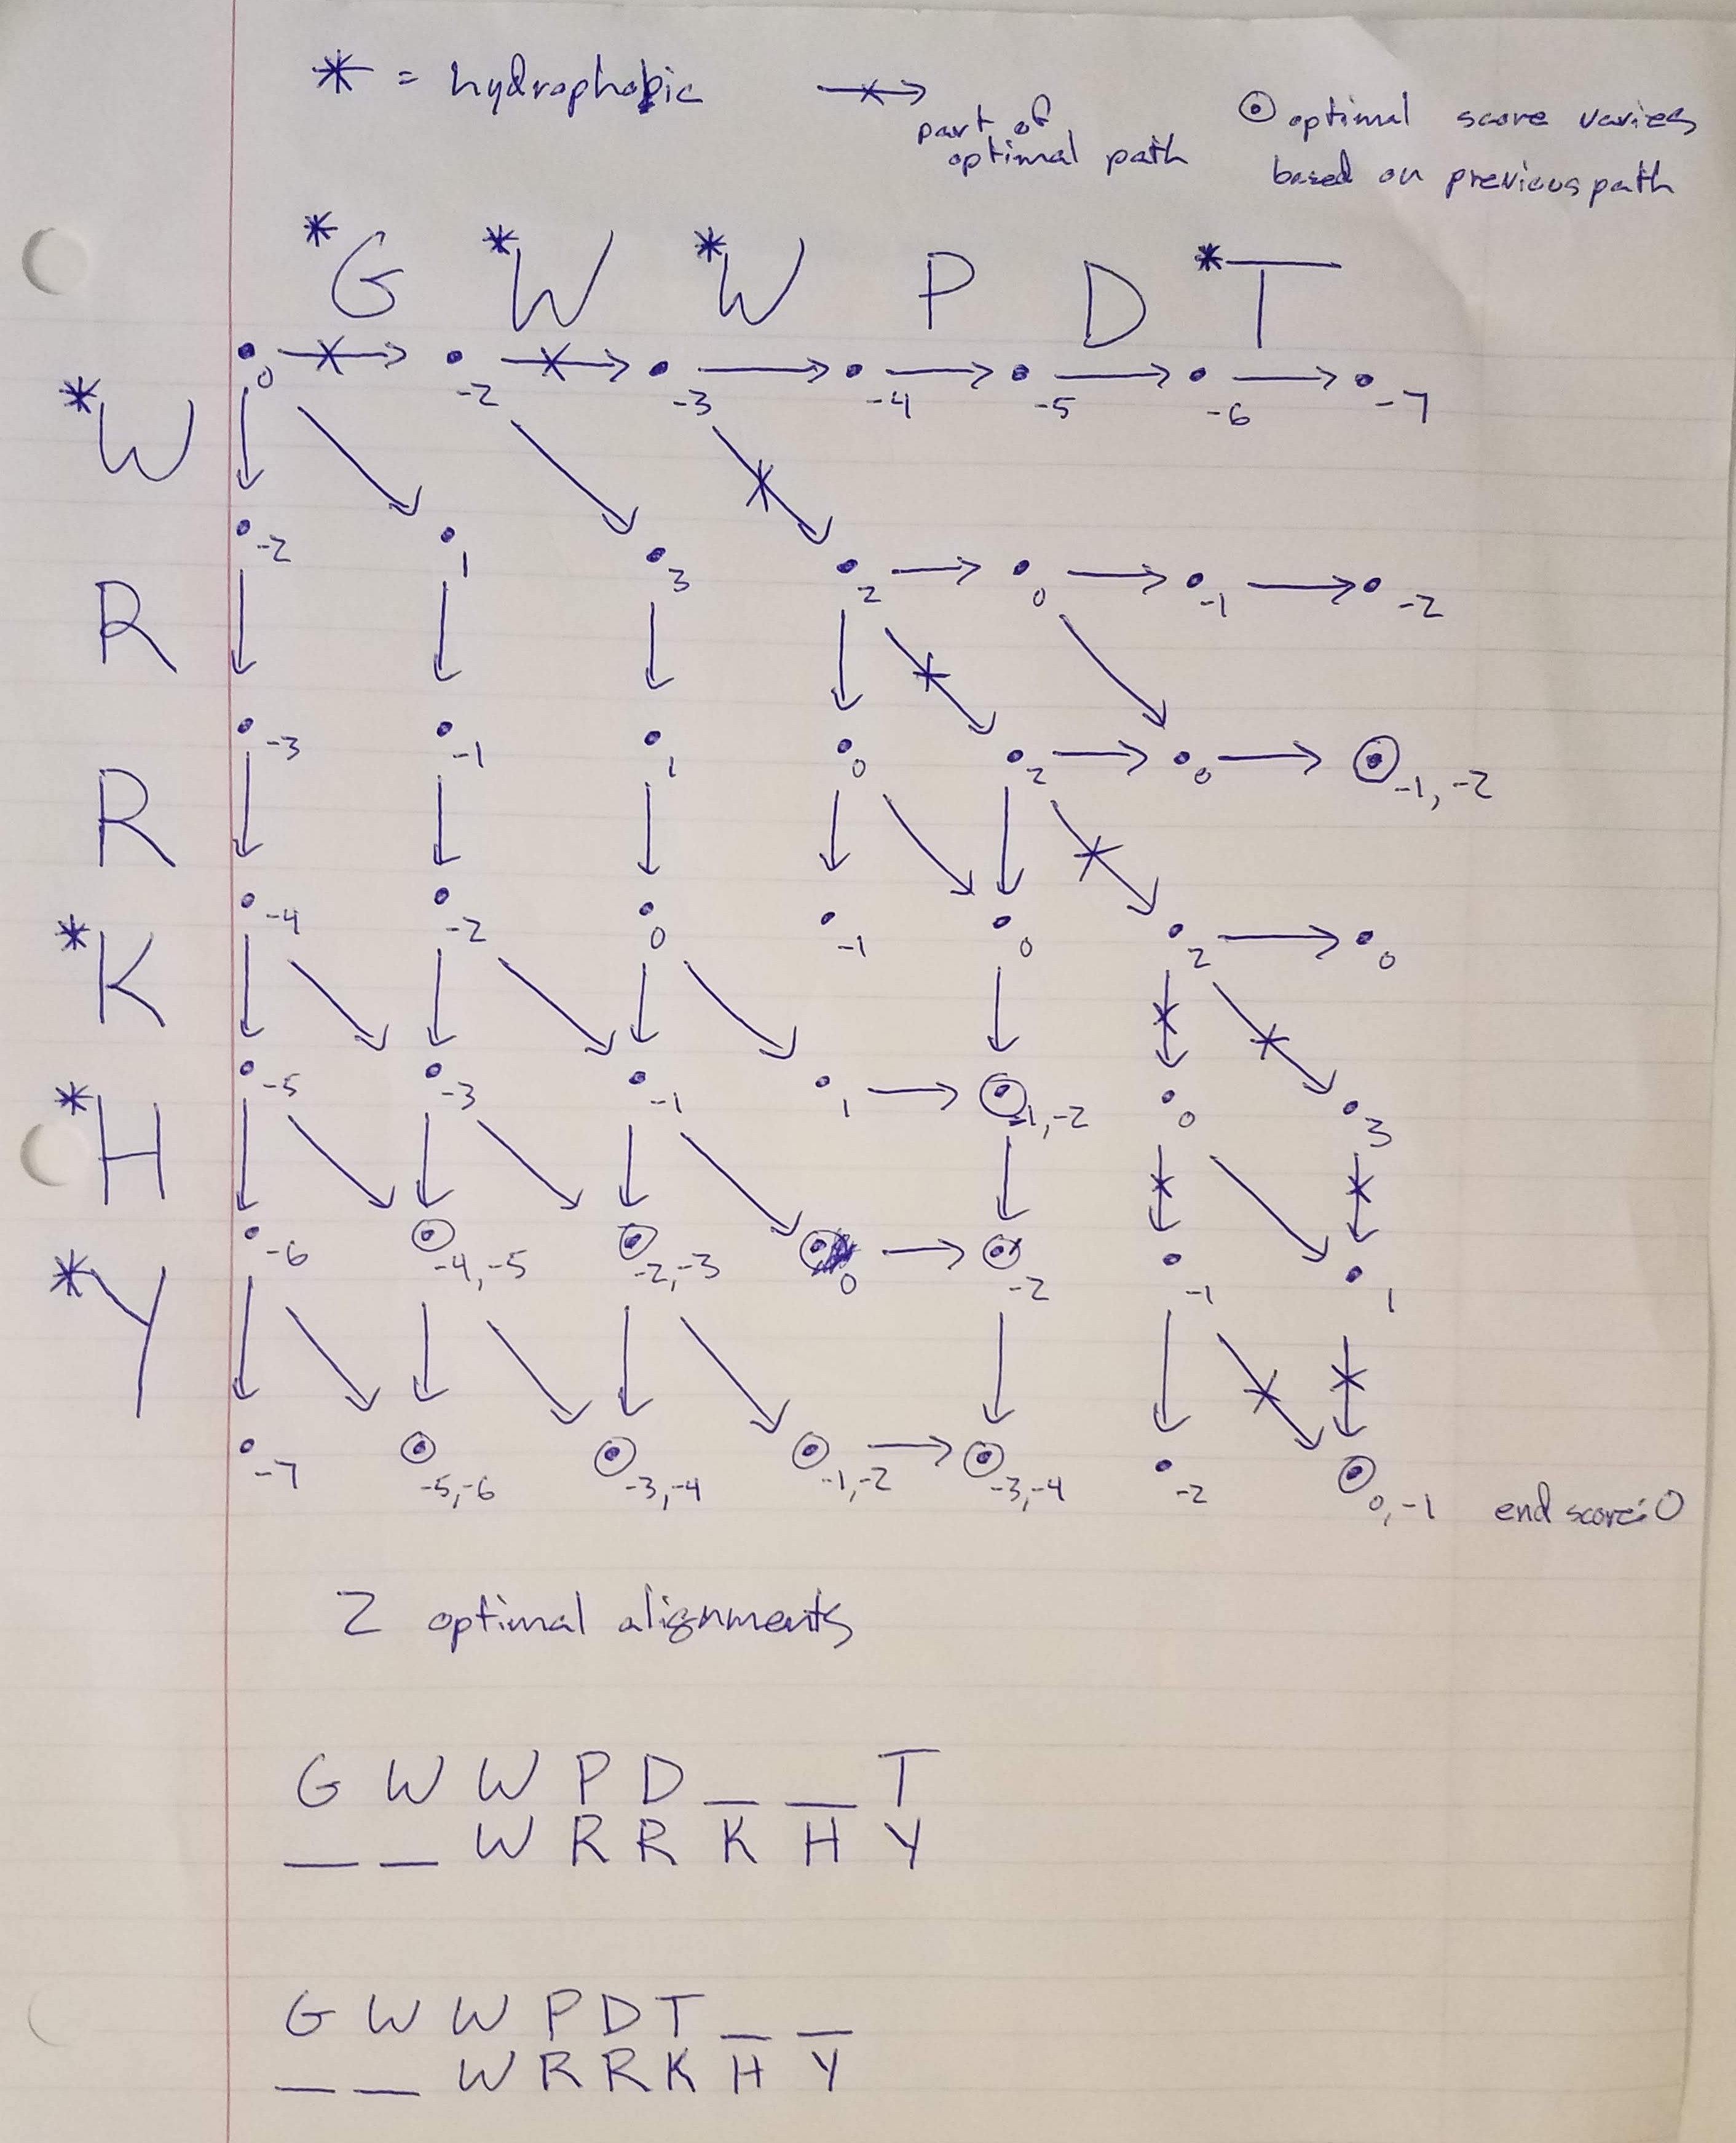 * = hydrophobic
part of optimal path
⊙ optimal score varies
based on previous path
*G *W *W P D *T
0 -2 -3 -4 -5 -6 -7
*W
-2 1 3 2 0 -1 -2
R
-3 -1 1 0 2 0 -1, -2
R
-4 -2 0 -1 0 2 0
*K
-5 -3 -1 1 -1, -2 0 3
*H
-6 -4, -5 -2, -3 0 -2 -1 1
*Y
-7 -5, -6 -3, -4 -1, -2 -3, -4 -2 0, -1 end score: 0
2 optimal alignments
G W W P D _ _ T
_ _ W R R K H Y
G W W P D T _ _
_ _ W R R K H Y